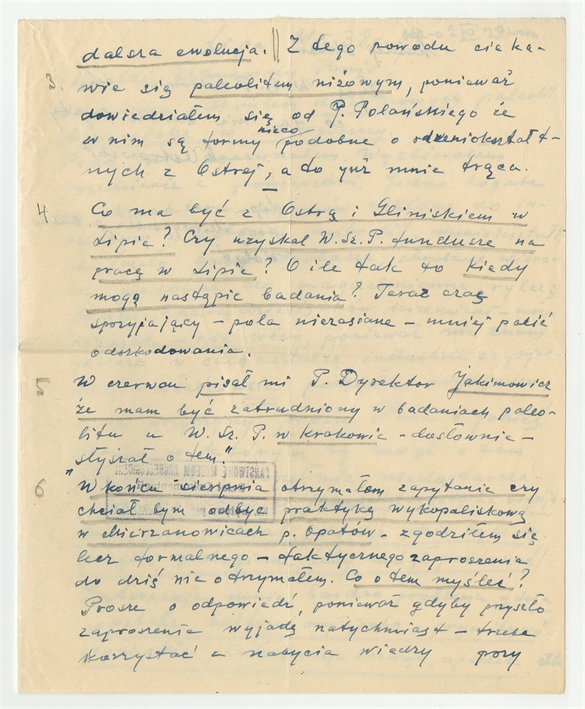 dalsza ewolucja. || Z tego powodu cieka-
3. wię się paleolitem niżowym, ponieważ
dowiedziałem się od P. Polańskiego że
w nim są formy nieco podobne o rdzeniokształt-
nych z Ostrej, a to już mnie trąca.
4 Co ma być z Ostrą i Gliniskiem w
Lipie? Czy uzyskał W. Sz. P. fundusze na
pracę w Lipie? O ile tak to kiedy
mogą nastąpić badania? Teraz czas
sporzyjający – pola niezasiane – mniej
odszkodowania.
5 W czerwcu pisał mi P. Dyrektor Jakimowicz
że mam być zatrudniony w badaniach paleo-
litu u W. Sz. P. w Krakowie – dosłownie –
"słyszał o tem."
6 W końcu sierpnia otrzymałem zapytanie czy
chciał bym odbyć praktykę wykopaliskową
w Mierzanowicach p. Opatów – zgodziłem się
lecz formalnego – faktycznego zaproszenia
do dziś nie otrzymałem. Co o tem myśleć?
Proszę o odpowiedź, ponieważ gdyby przyszło
zaproszenie wyjadę natychmiast – trzeba
korzystać a nabycia wiedzy pory